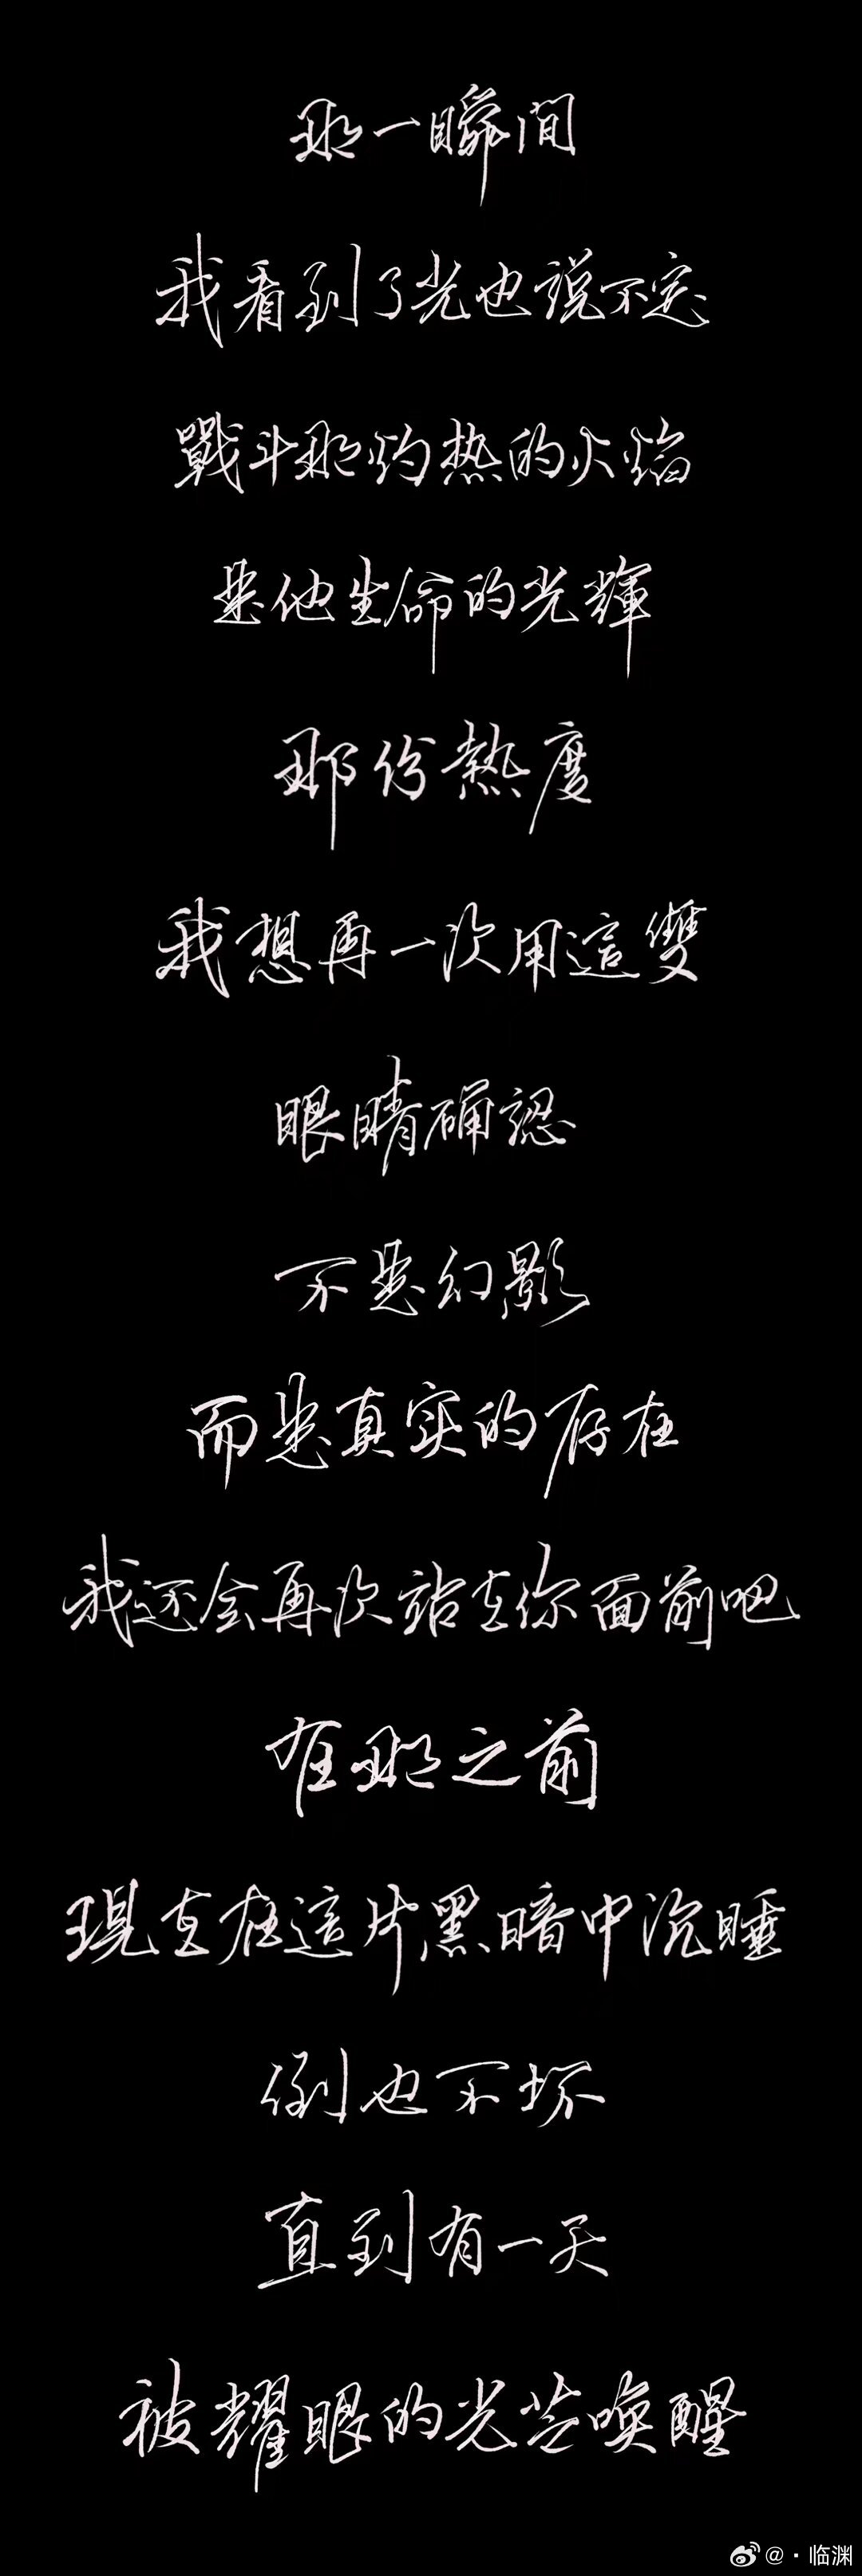 那一瞬间
我看到了光也説不定
戰斗那灼热的火焰
是他生命的光輝
那份熱度
我想再一次用這雙
眼睛确認
不是幻影
而是真实的存在
我还会再次站在你面前吧
在那之前
現在在這片黑暗中沉睡
倒也不坏
直到有一天
被耀眼的光芒喚醒
@·临渊